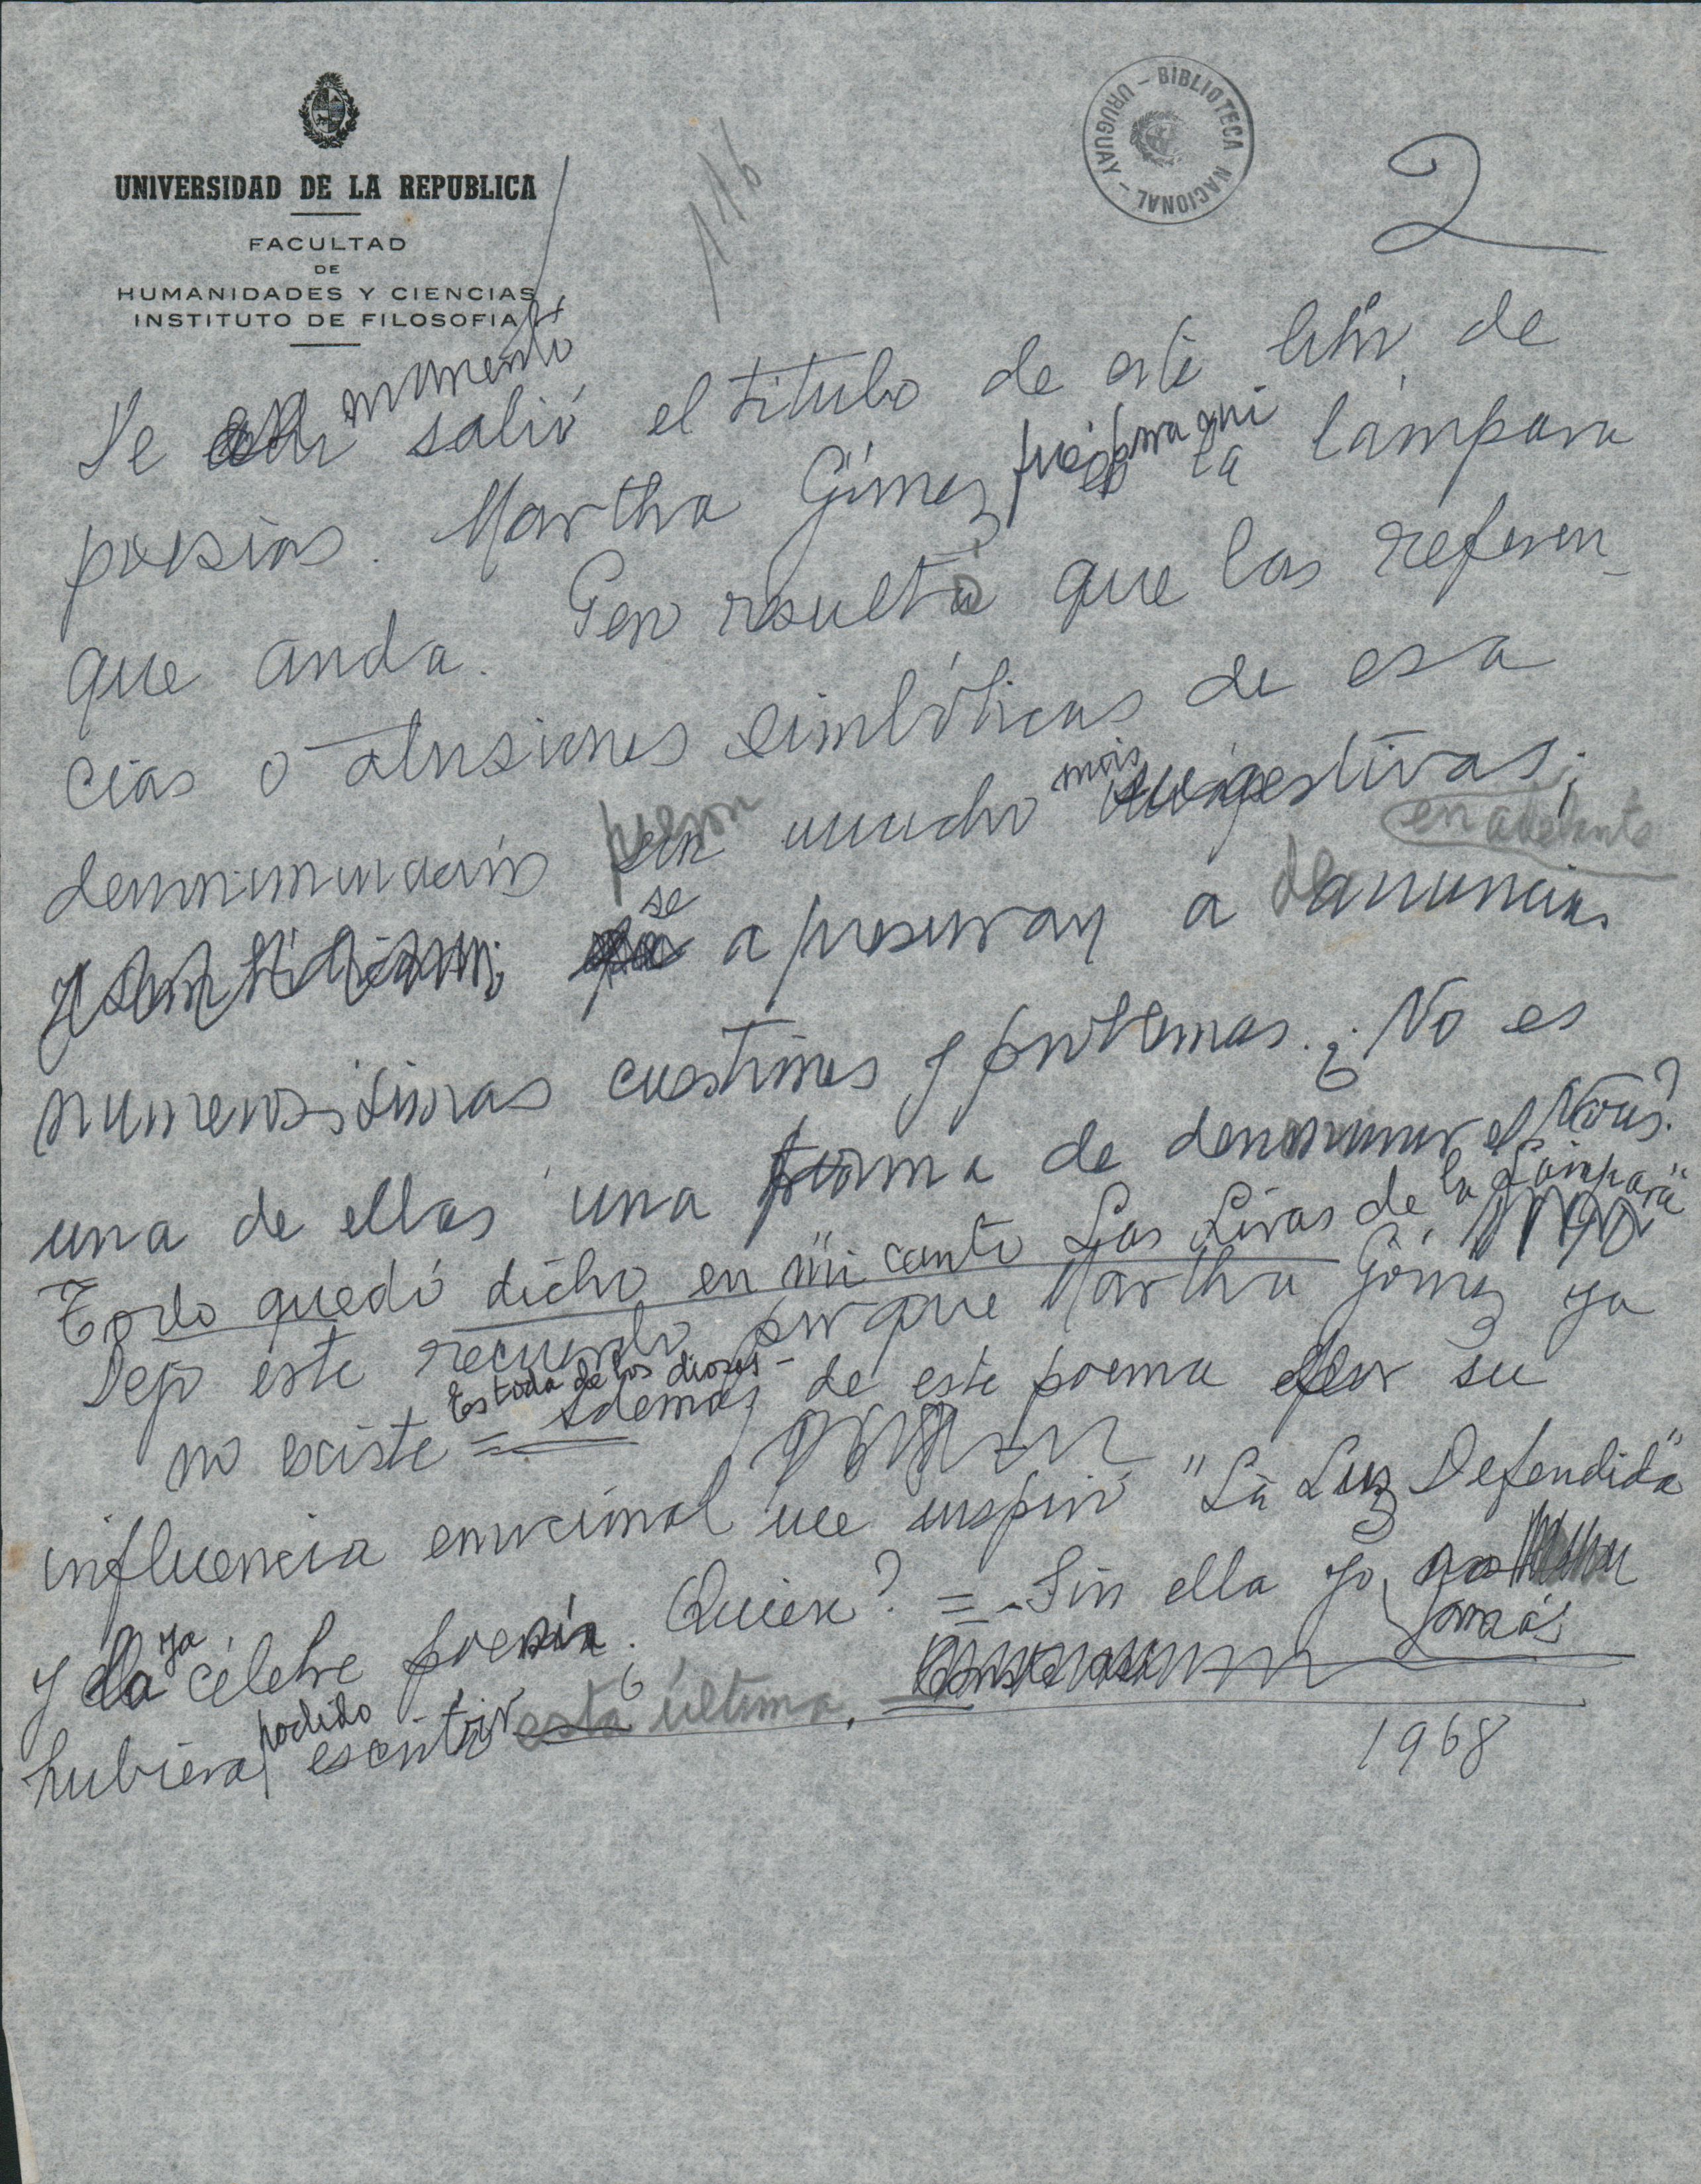 UNIVERSIDAD DE LA REPUBLICA
FACULTAD
DE
HUMANIDADES Y CIENCIAS
INSTITUTO DE FILOSOFIA
116
BIBLIOTECA NACIONAL - URUGUAY -
2
momento
De salió el titulo de este libro de
fué para mi
poesias. Martha Gómez la lámpara
que anda. Pero resultó que las referen-
cias o alusiones simbólicas de esa
denominación fueron mucho más sugestivas;
en adelante
se apresuran a denunciar
numerosísimas cuestiones y problemas. ¿No es
una de ellas una forma de denominar el Nous?
Todo quedó dicho en "mi canto Las Liras de la Lámpara"
Dejo este recuerdo porque Martha Gómez ya
Es toda de los dioses -
no existe = Además de este poema por su
influencia emocional me inspiró "La Luz Defendida"
y la ya célebre poesía. ¿Quien? = - Sin ella yo jamás
hubiera podido escribir esta última.
1968